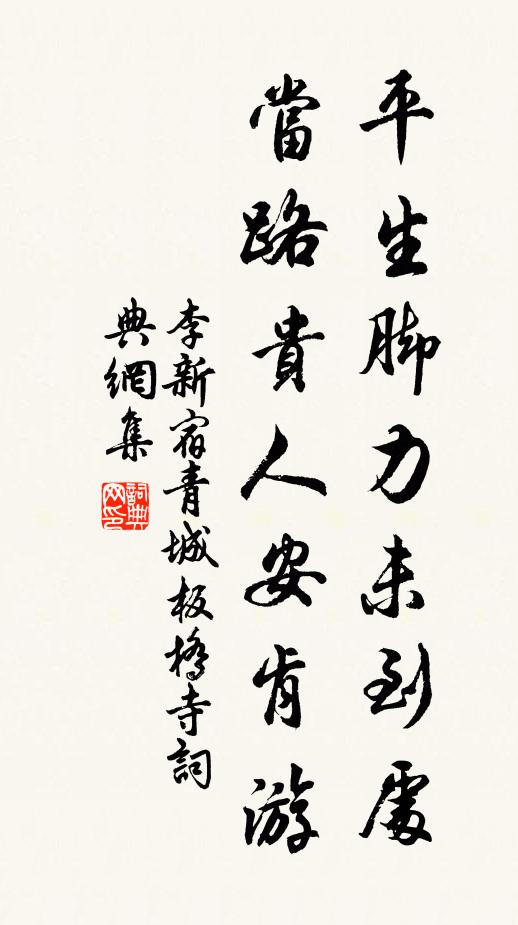 平生脚力未到處
當路貴人安肯游
李新宿青城板橋寺詞
典網集
詞典网印